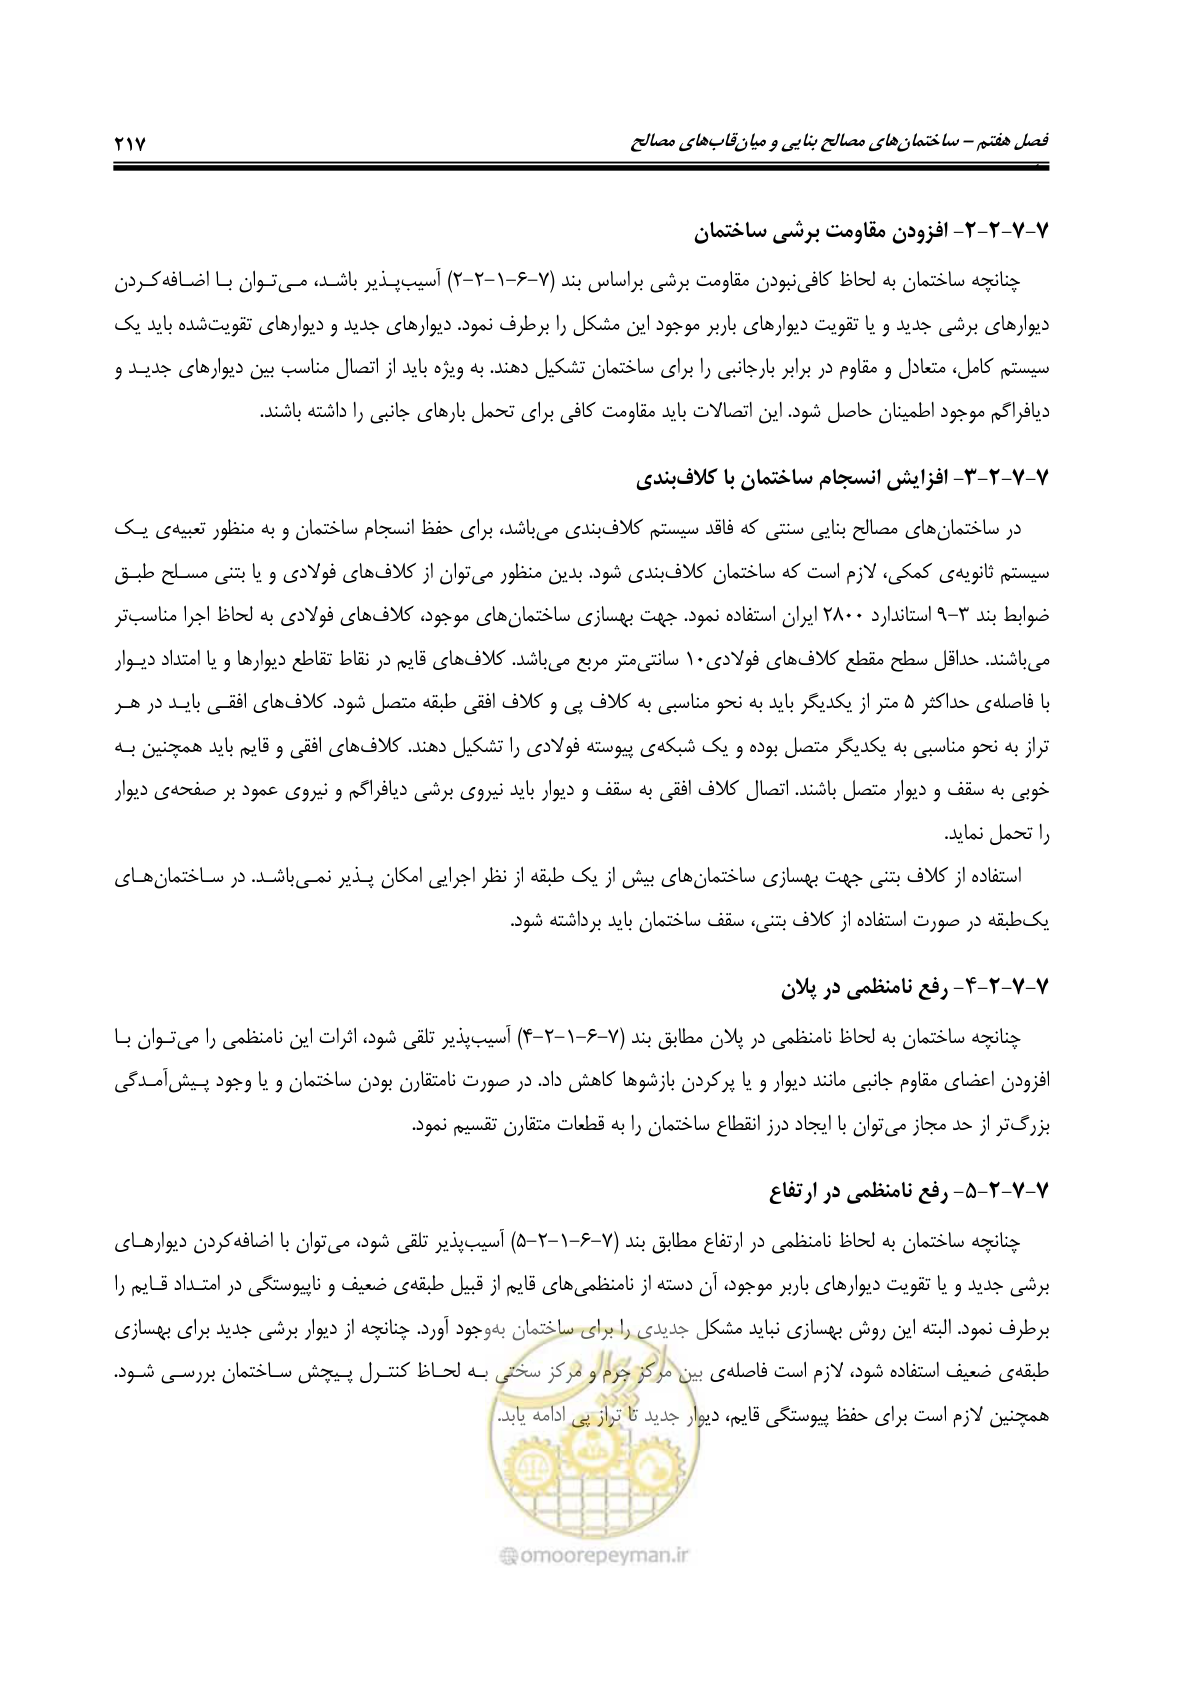 فصل هفتم – ساختمان‌های مصالح بنایی و میان‌قاب‌های مصالح ۲۱۷
۷-۷-۲-۲- افزودن مقاومت برشی ساختمان
چنانچه ساختمان به لحاظ کافی‌نبودن مقاومت برشی براساس بند (۷-۶-۱-۲-۲) آسیب‌پذیر باشد، می‌توان با اضافه‌کردن
دیوارهای برشی جدید و یا تقویت دیوارهای باربر موجود این مشکل را برطرف نمود. دیوارهای جدید و دیوارهای تقویت‌شده باید یک
سیستم کامل، متعادل و مقاوم در برابر بارجانبی را برای ساختمان تشکیل دهند. به ویژه باید از اتصال مناسب بین دیوارهای جدید و
دیافراگم موجود اطمینان حاصل شود. این اتصالات باید مقاومت کافی برای تحمل بارهای جانبی را داشته باشند.
۷-۷-۲-۳- افزایش انسجام ساختمان با کلاف‌بندی
در ساختمان‌های مصالح بنایی سنتی که فاقد سیستم کلاف‌بندی می‌باشد، برای حفظ انسجام ساختمان و به منظور تعبیه‌ی یک
سیستم ثانویه‌ی کمکی، لازم است که ساختمان کلاف‌بندی شود. بدین منظور می‌توان از کلاف‌های فولادی و یا بتنی مسلح طبق
ضوابط بند ۳-۹ استاندارد ۲۸۰۰ ایران استفاده نمود. جهت بهسازی ساختمان‌های موجود، کلاف‌های فولادی به لحاظ اجرا مناسب‌تر
می‌باشند. حداقل سطح مقطع کلاف‌های فولادی۱۰ سانتی‌متر مربع می‌باشد. کلاف‌های قایم در نقاط تقاطع دیوارها و یا امتداد دیوار
با فاصله‌ی حداکثر ۵ متر از یکدیگر باید به نحو مناسبی به کلاف پی و کلاف افقی طبقه متصل شود. کلاف‌های افقی باید در هر
تراز به نحو مناسبی به یکدیگر متصل بوده و یک شبکه‌ی پیوسته فولادی را تشکیل دهند. کلاف‌های افقی و قایم باید همچنین به
خوبی به سقف و دیوار متصل باشند. اتصال کلاف افقی به سقف و دیوار باید نیروی برشی دیافراگم و نیروی عمود بر صفحه‌ی دیوار
را تحمل نماید.
استفاده از کلاف بتنی جهت بهسازی ساختمان‌های بیش از یک طبقه از نظر اجرایی امکان پذیر نمی‌باشد. در ساختمان‌های
یک‌طبقه در صورت استفاده از کلاف بتنی، سقف ساختمان باید برداشته شود.
۷-۷-۲-۴- رفع نامنظمی در پلان
چنانچه ساختمان به لحاظ نامنظمی در پلان مطابق بند (۷-۶-۱-۲-۴) آسیب‌پذیر تلقی شود، اثرات این نامنظمی را می‌توان با
افزودن اعضای مقاوم جانبی مانند دیوار و یا پرکردن بازشوها کاهش داد. در صورت نامتقارن بودن ساختمان و یا وجود پیش‌آمدگی
بزرگ‌تر از حد مجاز می‌توان با ایجاد درز انقطاع ساختمان را به قطعات متقارن تقسیم نمود.
۷-۷-۲-۵- رفع نامنظمی در ارتفاع
چنانچه ساختمان به لحاظ نامنظمی در ارتفاع مطابق بند (۷-۶-۱-۲-۵) آسیب‌پذیر تلقی شود، می‌توان با اضافه‌کردن دیوارهای
برشی جدید و یا تقویت دیوارهای باربر موجود، آن دسته از نامنظمی‌های قایم از قبیل طبقه‌ی ضعیف و ناپیوستگی در امتداد قایم را
برطرف نمود. البته این روش بهسازی نباید مشکل جدیدی را برای ساختمان به‌وجود آورد. چنانچه از دیوار برشی جدید برای بهسازی
طبقه‌ی ضعیف استفاده شود، لازم است فاصله‌ی بین مرکز جرم و مرکز سختی به لحاظ کنترل پیچش ساختمان بررسی شود.
همچنین لازم است برای حفظ پیوستگی قایم، دیوار جدید تا تراز پی ادامه یابد.
امور پیمان
@omoorepeyman.ir